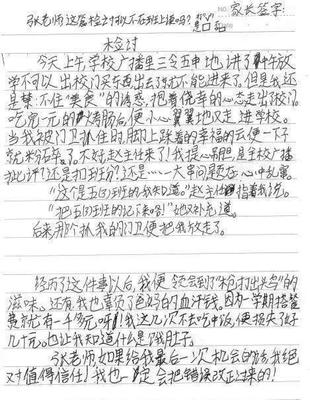 家长签字:
张老师这篇检讨可以不在班上读吗?
检讨
今天上午学校广播里三令五申地讲了中午放
学不可以出校门买东西出去了就不能进来了。但是我还
是禁不住“美食”的诱惑,抱着侥幸的心态走出校门。
吃完一元的烤肠后,便小心翼翼地又走进学校。
当我被门卫抓住时,脚上踩着的幸福的云便一下子
就粉碎了。不好,赵主任来了!我提心吊胆,是全校广播
批评?还是扣班分?还是……一大串问题在心中乱窜。
“这个是五(四)班的我知道。”赵主任指着我说。
“把五(四)班的记下来咯!”她又补充道。
后来那个抓我的门卫便把我放走了。
经历了这件事以后,我便领会到了“枪打出头鸟”的
滋味。还有,我也辜负了爸妈的血汗钱。因为一学期搭餐
费就有一千多元呀!我这几次不去吃中饭,便损失了好
几十元。也让我知道什么是饿肚子。
张老师如果给我最后一次机会的话我绝
对值得信任!我也一定会把错误改正过来的!